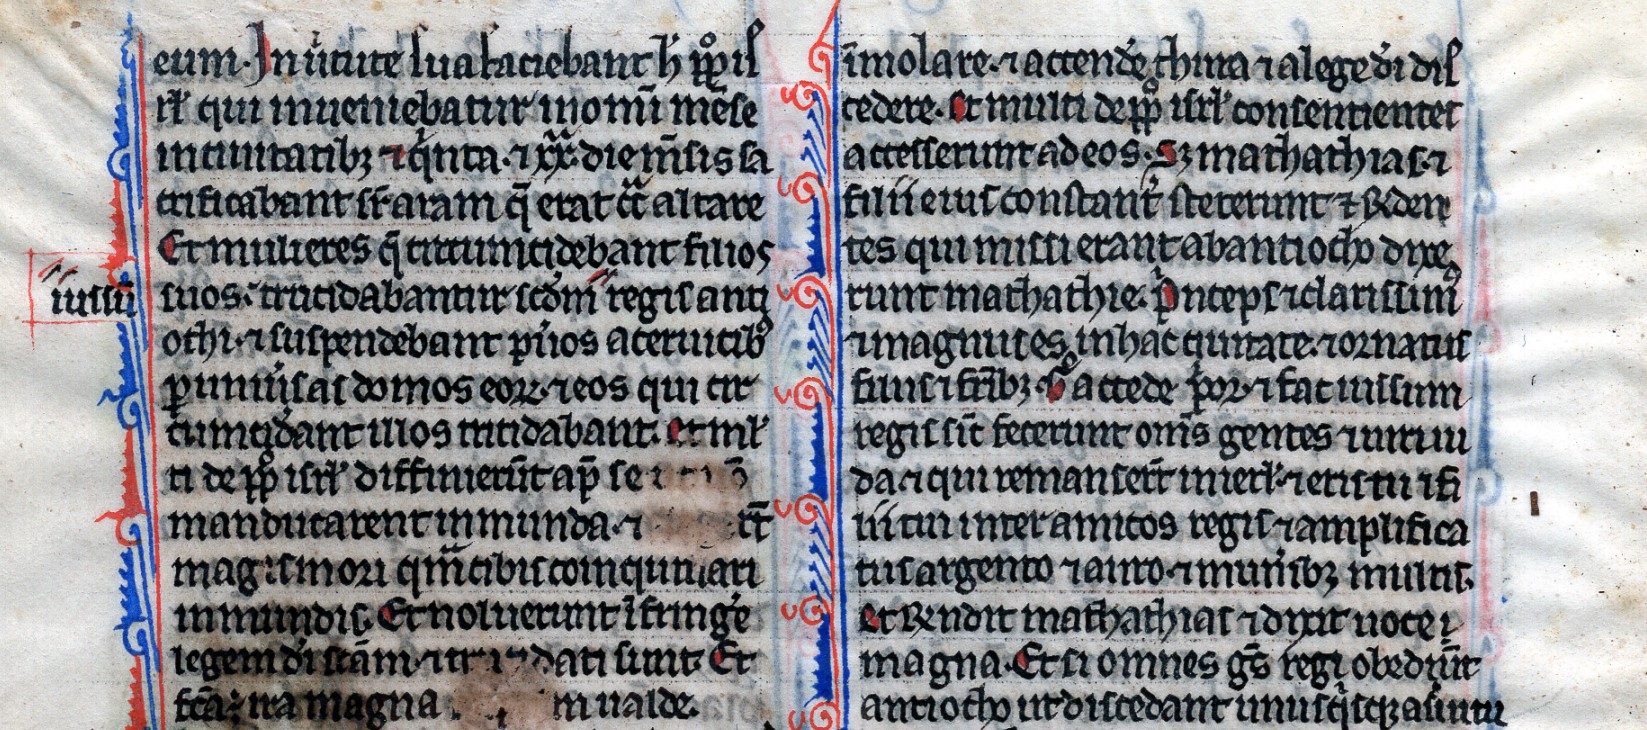 eum. In uirtute sua faciebant h ppl isr
rl qui inueniebatur in omi mēse
in ciuitatibꝫ ⁊ qinta ⁊ xx die mēsis sa
crificabant sr̄ aram q̄ erat cͣ altare
Et mulieres q̄ circumcidebant filios
suos. trucidabantur scdm regis anti
iussū
ochi. ⁊ suspendebant pu̾os a ceruicibꝰ
ꝑ uniu̾sas domos eoꝝ. ⁊ eos qui cir
cumcid̾ant illos trucidabant. Et ml̾
ti de ppl̊o isrl̾ diffinierūt ap̄ se
manducarent inmunda. ⁊
magis mori qͣm cibis coinquinari
inmundis. Et noluerunt īfringe̾
legem di̾ scām. ⁊ trucidati sunt. Et
fcā ÷ ira magna ualde.
īmolare. ⁊ accende̾ thura ⁊ a lege di̾ dis
cedere. Et multi de ppl̊o isrl̾ consentientes
accesserunt ad eos. Sꝫ mathathias. ⁊
filii eius constant̾ steterunt ⁊ r̾nden
tes qui missi erant ab antiocho dixe
runt mathathie. Pͥnceps ⁊ clarissimꝰ
⁊ magnus es in hac ciuitate. ⁊ ornatus
filiis ⁊ fr̄ibꝫ. g̊ accede pͥor. ⁊ fac iussum
regis sic̄ fecerunt om̄s gentes ⁊ uiri iu
da. ⁊ qui remanser̄t in ierl̾m. ⁊ eris tu ⁊ fi
lii tui inter amicos regis ⁊ amplifica
tus argento ⁊ auro. ⁊ muneribꝫ multis.
Et r̾ndit mathathias ⁊ dixit uoce
magna. Et si omnes ḡs regi obediūt
antiocho ut discedant unusqͥsqꝫ a s̾uitu